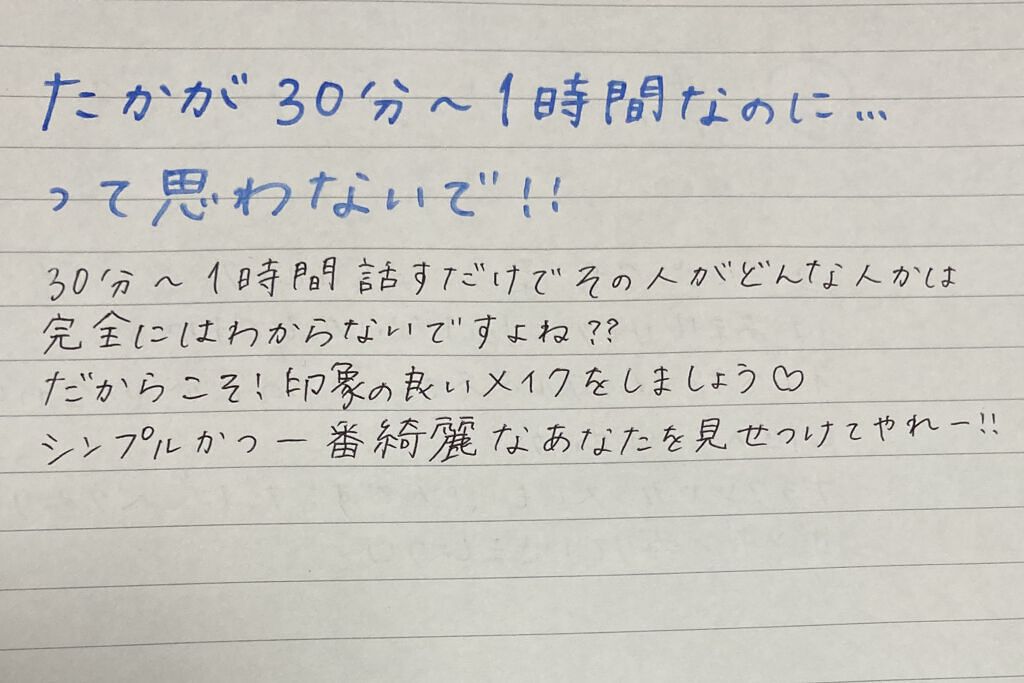 たかが30分～1時間なのに…
って思わないで!!
30分～1時間話すだけでその人がどんな人かは
完全にはわからないですよね??
だからこそ!印象の良いメイクをしましょう♡
シンプルかつ一番綺麗なあなたを見せつけてやれー!!